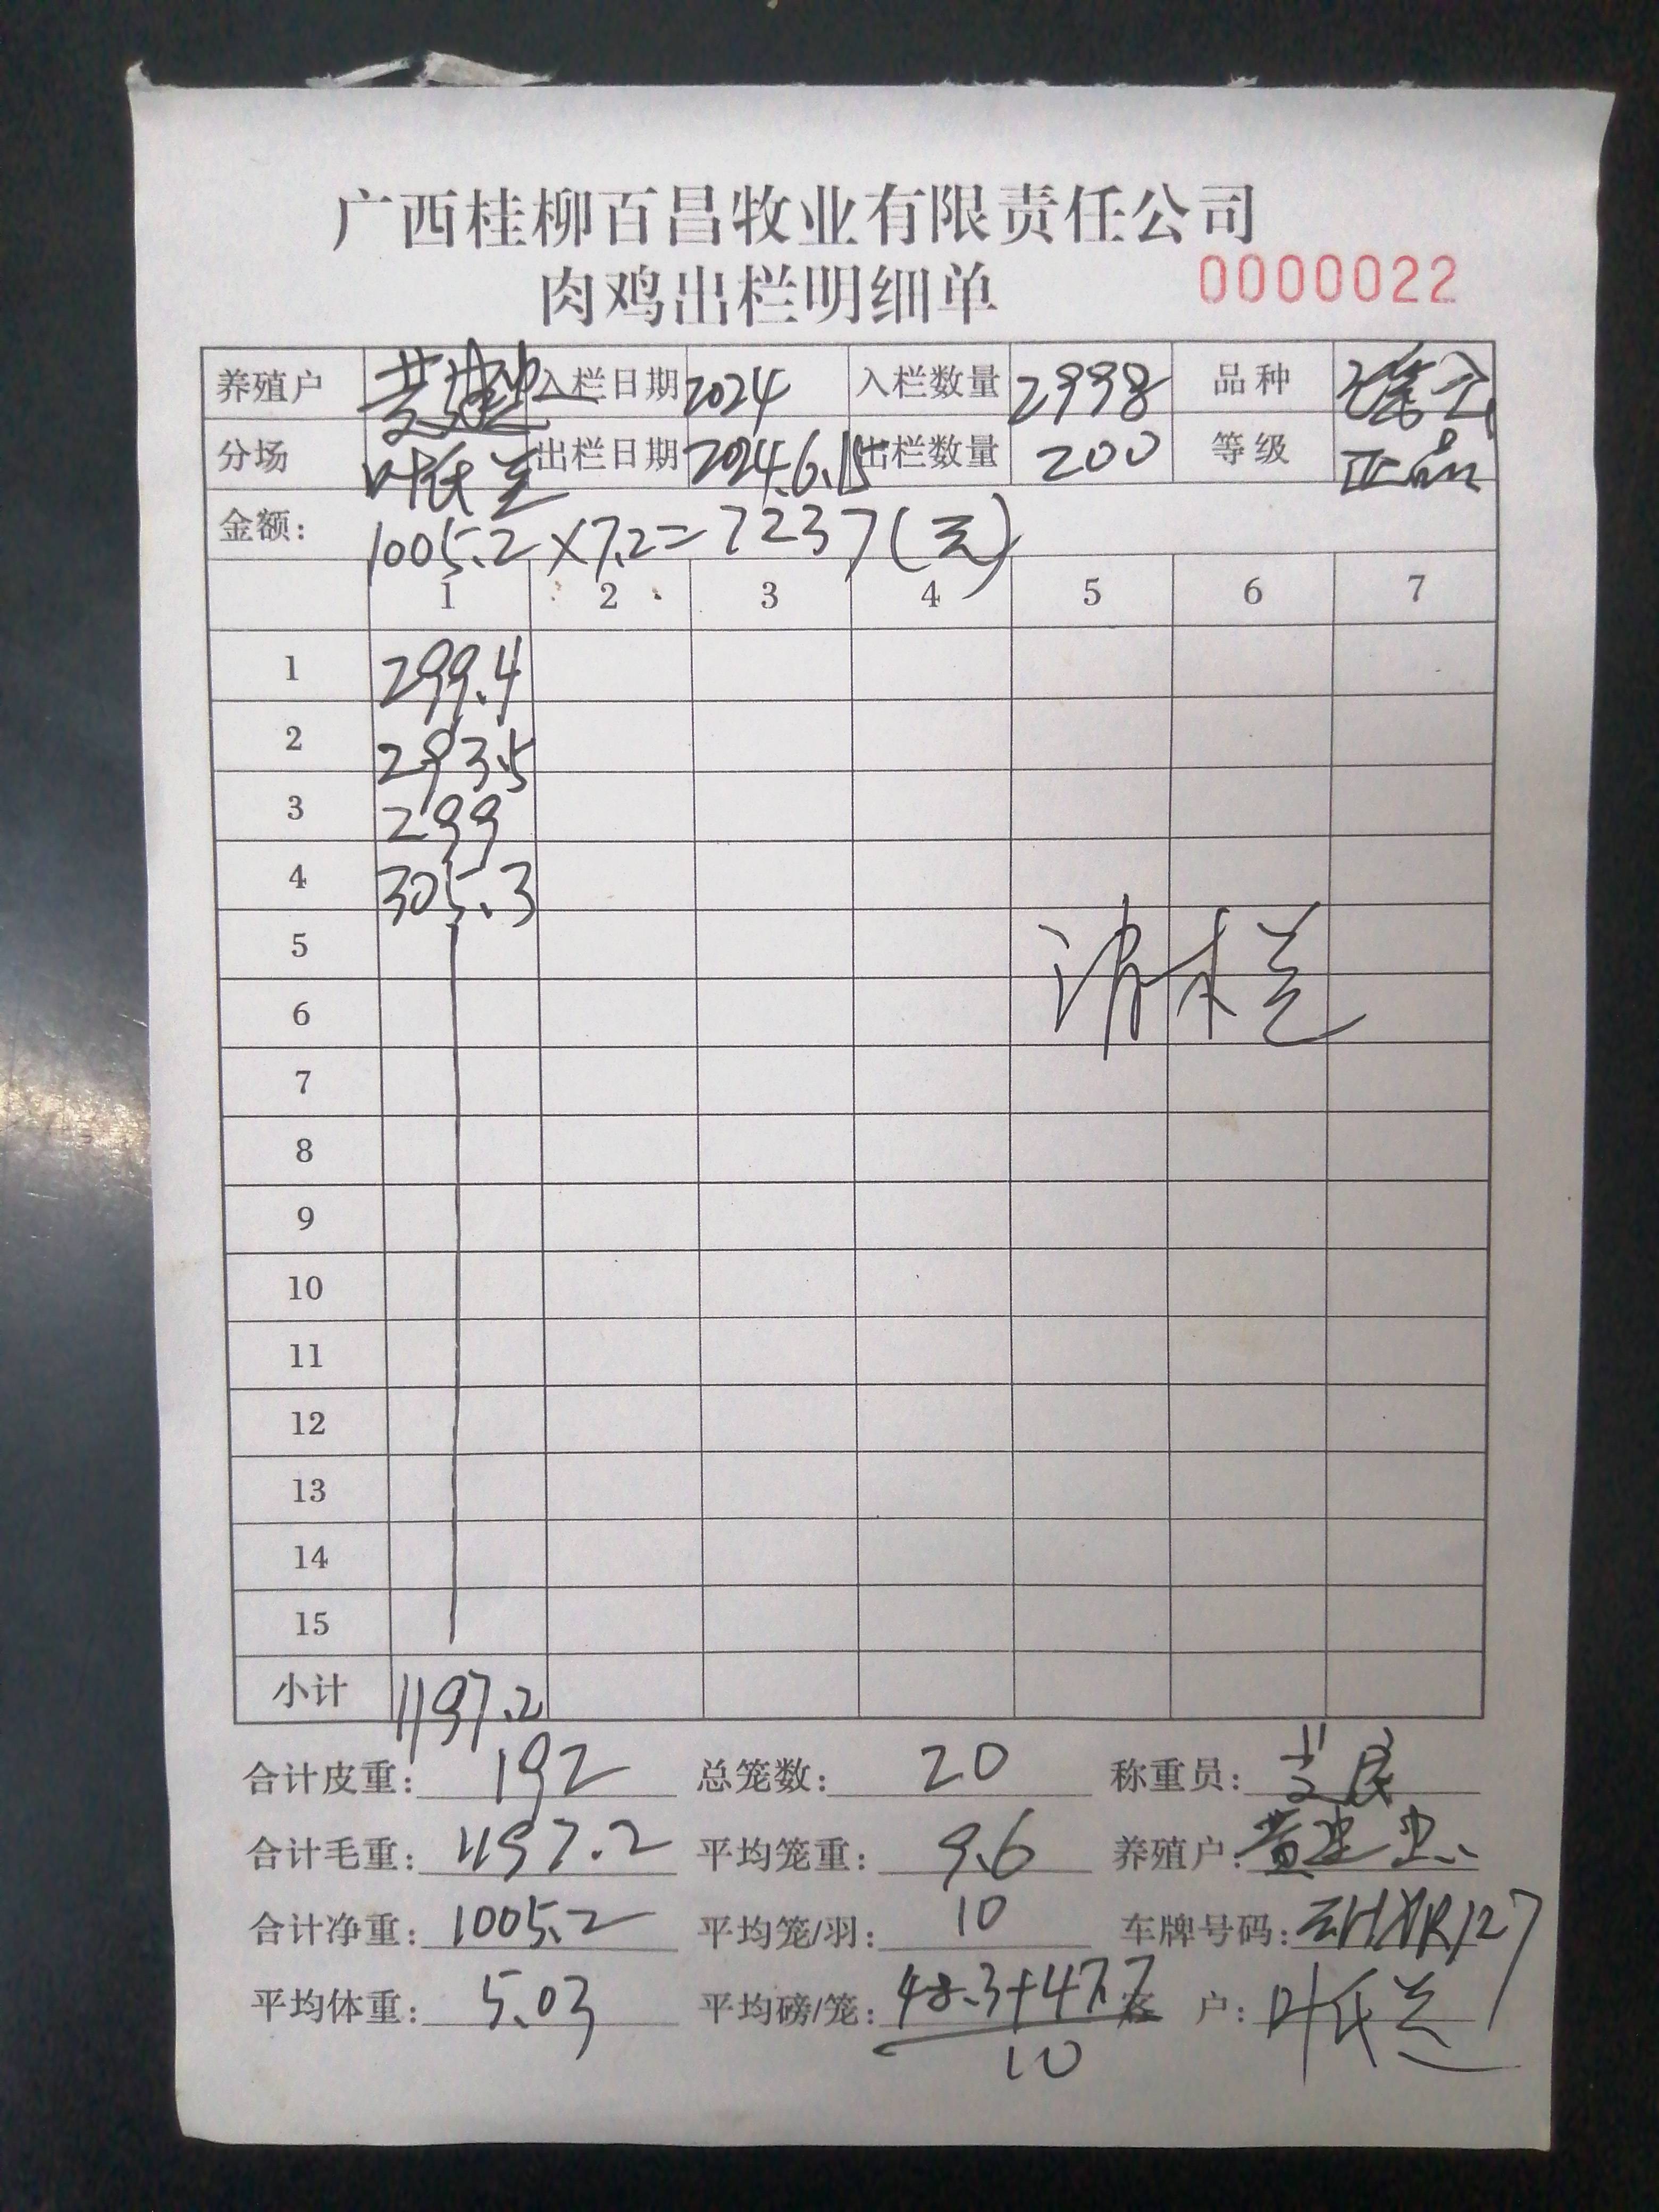 广西桂柳百昌牧业有限责任公司
肉鸡出栏明细单 0000022
养殖户 黄建忠 入栏日期 2024 入栏数量 2998 品种
分场 叶氏兰 出栏日期 2024.6.15 出栏数量 200 等级 正品
金额: 1005.2×7.2=7237(元)
1 2 3 4 5 6 7
1 299.4
2 293.5
3 299
4 305.3
5
清栏
6
7
8
9
10
11
12
13
14
15
小计 1197.2
合计皮重: 192 总笼数: 20 称重员:
合计毛重: 1197.2 平均笼重: 9.6 养殖户: 黄建忠
合计净重: 1005.2 平均笼/羽: 10 车牌号码:
平均体重: 5.03 平均磅/笼: 48.3+47.7 客 户: 叶氏兰
10